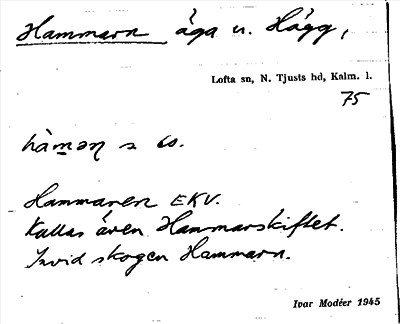 Hammarn äga u. Hägg,
Lofta sn, N. Tjusts hd, Kalm. l.
75
hàmən s co.
Hammaren EKV.
Kallas även Hammarskiftet.
Invid skogen Hammarn.
Ivar Modéer 1945